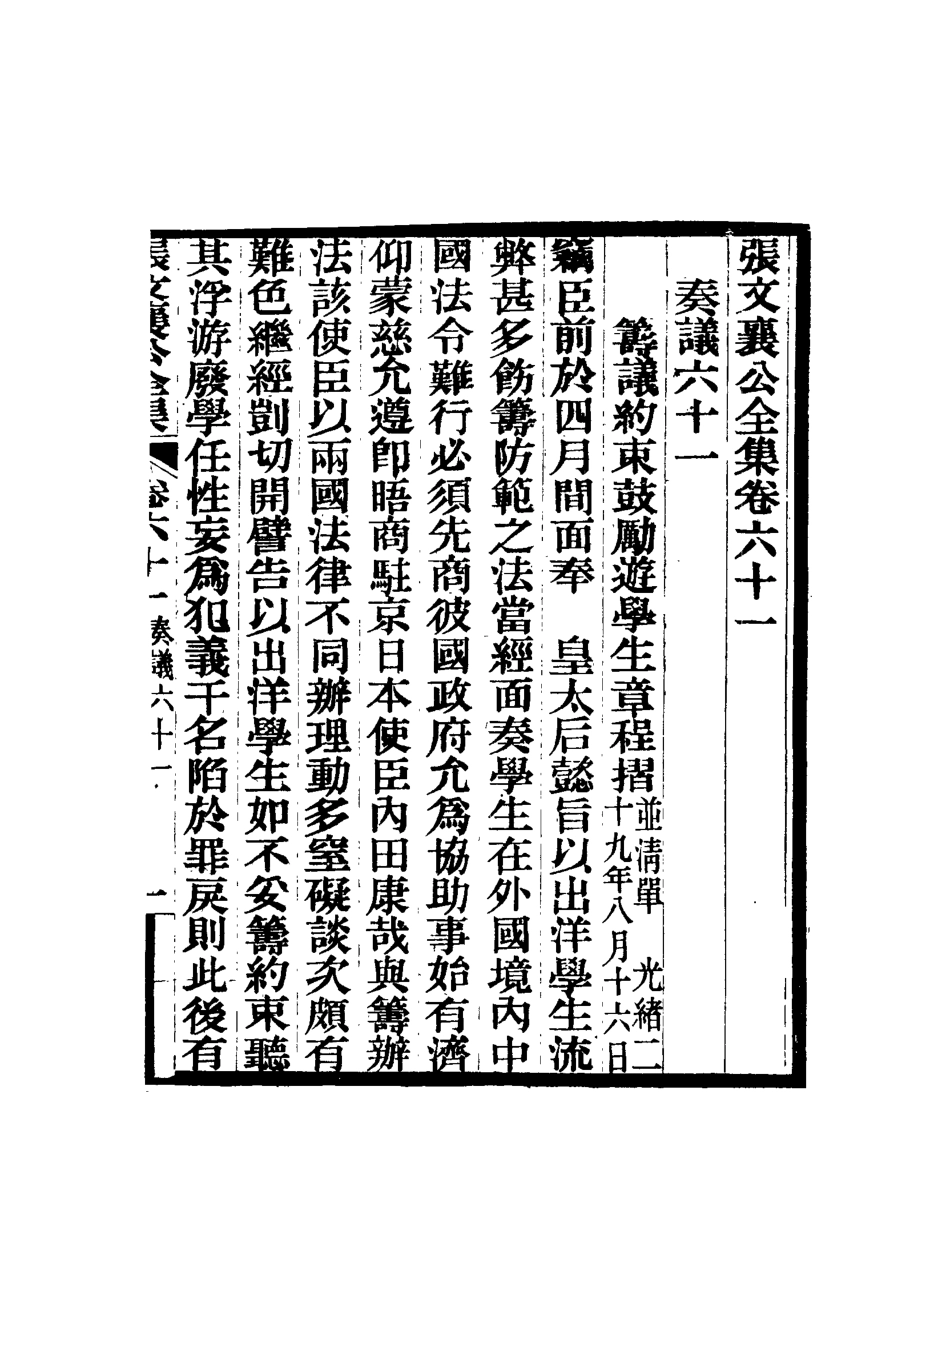 張文襄公全集卷六十一
奏議六十一
籌議約束鼓勵遊學生章程摺並清單　光緒二十九年八月十六日
竊臣前於四月間面奉　皇太后懿旨以出洋學生流
弊甚多飭籌防範之法當經面奏學生在外國境內中
國法令難行必須先商彼國政府允爲協助事始有濟
仰蒙慈允遵卽晤商駐京日本使臣內田康哉與籌辦
法該使臣以兩國法律不同辦理動多窒礙談次頗有
難色繼經剴切開譬告以出洋學生如不妥籌約束聽
其浮游廢學任性妄爲犯義干名陷於罪戾則此後有
張文襄公全集　卷六十一奏議六十一　一